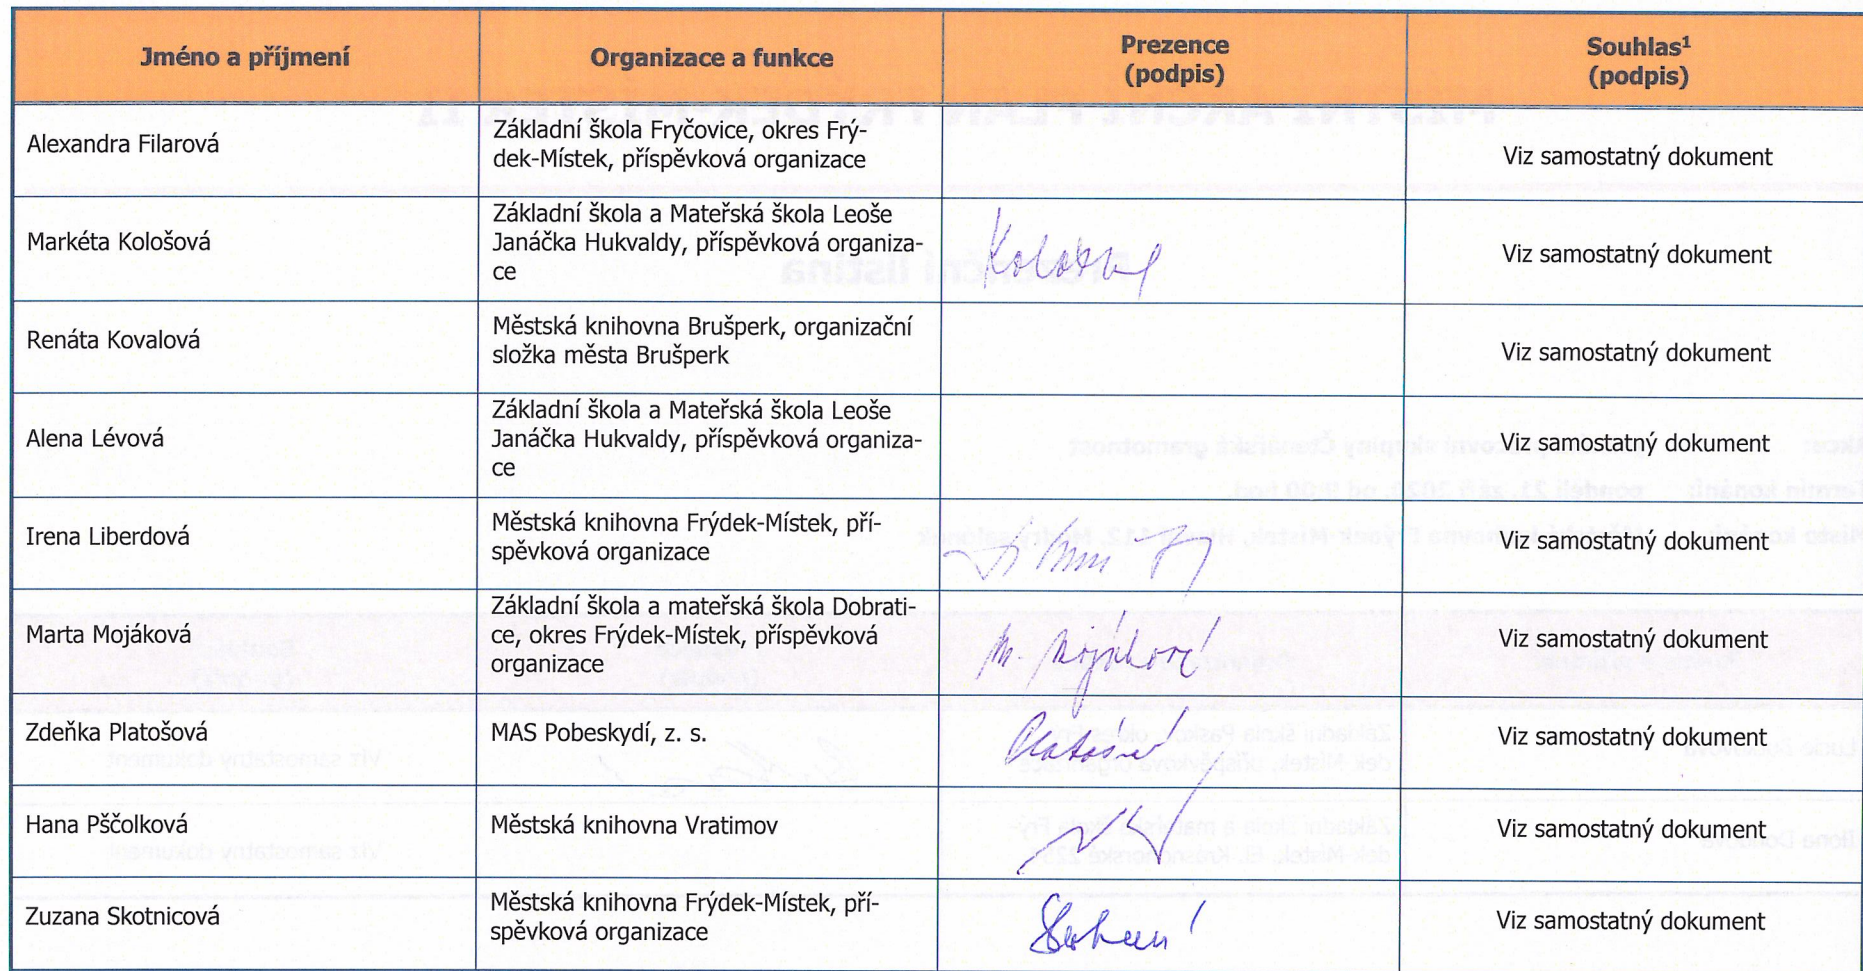 Jméno a příjmení
Organizace a funkce
Prezence
(podpis)
Souhlas¹
(podpis)
Alexandra Filarová
Základní škola Fryčovice, okres Frý-
dek-Místek, příspěvková organizace
Viz samostatný dokument
Markéta Kološová
Základní škola a Mateřská škola Leoše
Janáčka Hukvaldy, příspěvková organiza-
ce
Viz samostatný dokument
Renáta Kovalová
Městská knihovna Brušperk, organizační
složka města Brušperk
Viz samostatný dokument
Alena Lévová
Základní škola a Mateřská škola Leoše
Janáčka Hukvaldy, příspěvková organiza-
ce
Viz samostatný dokument
Irena Liberdová
Městská knihovna Frýdek-Místek, pří-
spěvková organizace
Viz samostatný dokument
Marta Mojáková
Základní škola a mateřská škola Dobrati-
ce, okres Frýdek-Místek, příspěvková
organizace
M. Mojáková
Viz samostatný dokument
Zdeňka Platošová
MAS Pobeskydí, z. s.
Viz samostatný dokument
Hana Pščolková
Městská knihovna Vratimov
Viz samostatný dokument
Zuzana Skotnicová
Městská knihovna Frýdek-Místek, pří-
spěvková organizace
Viz samostatný dokument